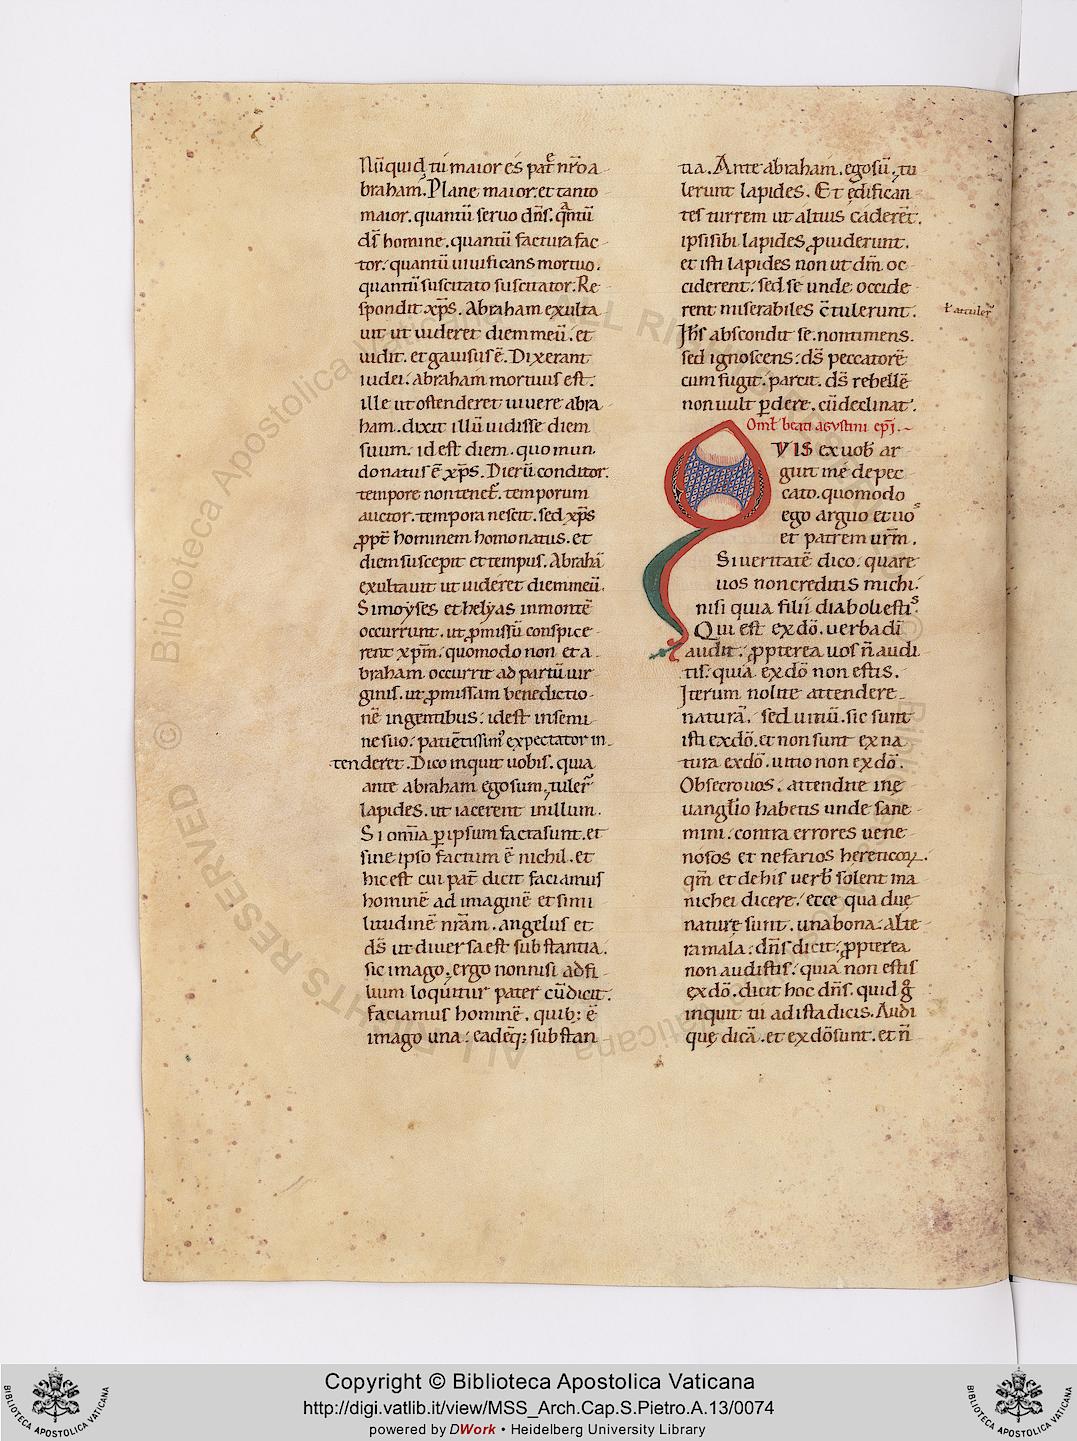 Nūquid tu maior es pat̄e nr̄o a
braham. Plane maior. et tanto
maior. quantū seruo dn̄s. qͣntū
ds̄ homine. quantū factura fac
tor. quantū uiuificans mortuo.
quantū suscitato suscitator. Re
spondit xp̄s. Abraham exulta
uit ut uideret diem meū. et
uidit. et gauisus ē. Dixerant
iudei. abraham mortuus est.
ille ut ostenderet uiuere abra
ham. dixit illū uidisse diem
suum. id est diem. quo mun
do natus ē xp̄s. Dierū conditor.
tempore non tenet᷑. temporum
auctor. tempora nescit. sed xp̄s
ꝓpt̄ hominem homo natus. et
diem suscepit et tempus. Abrahā
exultauit ut uideret diem meū.
Si moyses et helyas in montē
occurrunt. ut ꝓmissū conspice
rent xp̄m. quomodo non et a
braham occurrit ad partū uir
ginis. ut ꝓmissam benedictio
nē in gentibus. id est in semi
ne suo. patiētissimꝰ expectator in
tenderet. Dico inquit uobis. quia
ante abraham ego sum. ⁊ tuler᷑
lapides. ut iacerent in illum.
Si om̄ia ꝑ ipsum facta sunt. et
sine ipso factum ē nichil. et
hic est cui pat̄ dicit faciamus
hominē ad imaginē et simi
litudinē nr̄am. angelus et
ds̄ ut diuersa est substantia.
sic imago. ergo non nisi ad fi
lium loquitur pater cū dicit.
faciamus hominē. quib; ē
imago una. eadēq; substan
tia. Ante abraham. ego sū. ⁊ tu
lerunt lapides. Et ędifican
tes turrem ut altius caderēt.
ipsi sibi lapides ꝓuiderunt.
et isti lapides non ut dn̄m oc
ciderent. sed se unde occide
rent miserabiles c̄tulerunt.
ł attuler᷑
Jhs̄ abscondit se. non timens.
sed ignoscens. ds̄ peccatorē
cum fugit. parcit. ds̄ rebellē
non uult ꝑdere. cū declinat.
Oml̄ beati agustini ep̄i.
QVIS ex uob̄ ar
guit me de pec
cato. quomodo
ego arguo et uoˢ
et patrem ur̄m.
Si ueritatē dico. quare
uos non creditis michi.
nisi quia filii diaboli estiˢ
Qui est ex dō. uerba dī
audit. ꝓpterea uos n̄ audi
tis. quia ex dō non estis.
Jterum nolite attendere
naturā. sed uitiū. sic sunt
isti ex dō. et non sunt ex na
tura ex dō. uitio non ex dō.
Obsecro uos. attendite in e
uangl̄io habetis unde sane
mini. contra errores uene
nosos et nefarios hereticoꝝ.
qm̄ et de his uerb̄ solent ma
nichei dicere. ecce qua duę
naturę sunt. una bona. alte
ra mala. dn̄s dicit. ꝓpterea
non auditis. quia non estis
ex dō. dicit hoc dn̄s. quid gͦ
inquit tu ad ista dicis. Audi
quę dicā. et ex dō sunt. et n̄
© Biblioteca Apostolica Vaticana ALL RIGHTS RESERVED
BIBLIOTECA APOSTOLICA VATICANA
Copyright © Biblioteca Apostolica Vaticana
http://digi.vatlib.it/view/MSS_Arch.Cap.S.Pietro.A.13/0074
powered by DWork • Heidelberg University Library
BIBLIOTECA APOSTOLICA VATICANA